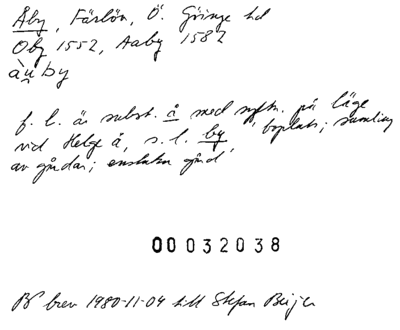 Åby, Färlöv, Ö. Göinge hd
Oby 1552, Aaby 1582
àu̯by
f. l. är subst. å med syftn. på läge
vid Helge å, s. l. by 'boplats; samling
av gårdar; enstaka gård'
00032038
brev 1980-11-04 till Stefan Beijer